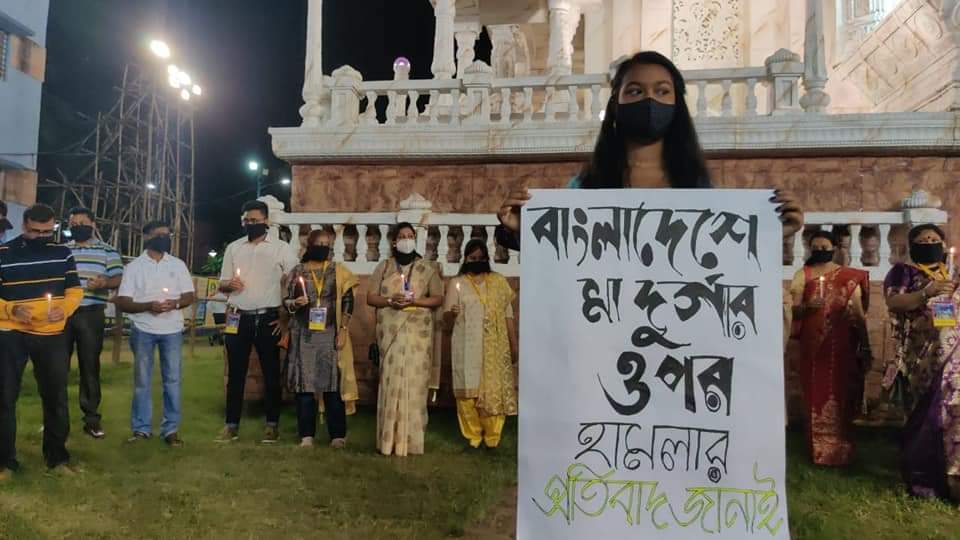 বাংলাদেশে
মা দুর্গার
ওপর
হামলার
প্রতিবাদ জানাই